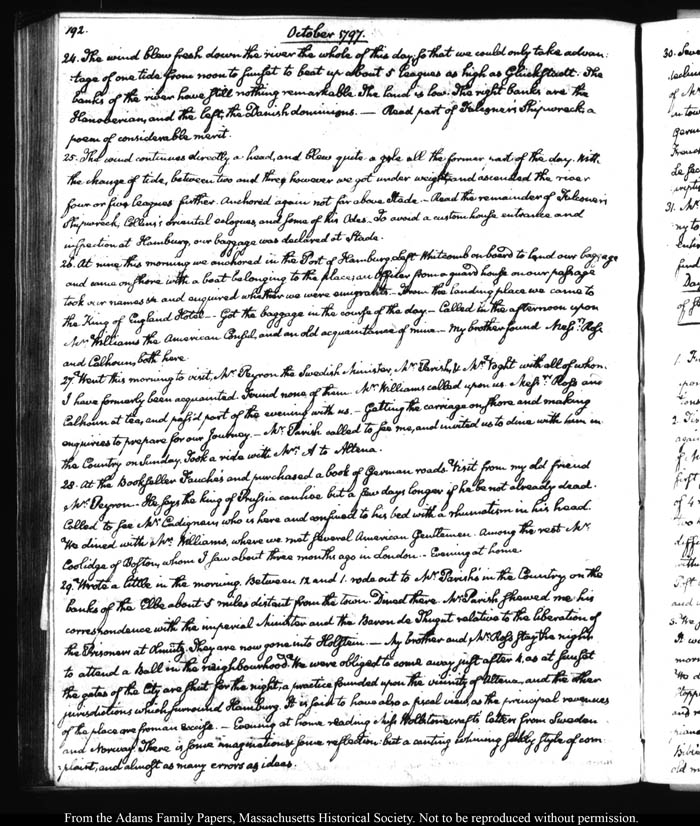 192.
October 1797.
24. The wind blew fresh down the river the whole of this day, so that we could only take advan-
tage of one tide from noon to sunset to beat up about 5 leagues as high as Glückstadt. The
banks of the river have still nothing remarkable. The land is low. The right banks are the
Hanoverian, and the left, the Danish dominions. — Read part of Falconer's Shipwreck, a
poem of considerable merit.
25. The wind continues directly a head, and blew quite a gale all the former part of the day. With
the change of tide, between two and three however we got under weigh, and ascended the river
four or five leagues further. Anchored again not far above Stade. — Read the remainder of Falconer's
Shipwreck, Collins's oriental eclogues, and some of his Odes. To avoid a customhouse entrance and
inspection at Hamburg, our baggage was declared at Stade.
26. At nine this morning we anchored in the Port of Hamburg. Left Whitcomb on board to land our baggage
and came on shore with a boat belonging to the place; an Officer from a guard house on our passage
took our names &c and enquired whether we were emigrants. From the landing place we came to
the King of England Hotel — Got the baggage in the course of the day — Called in the afternoon upon
Mr. Williams the American Consul, and an old acquaintance of mine — My brother found Messrs. Ross
and Calhoun, both here
27. Went this morning to visit, Mr. Peyron the Swedish Minister, Mr. Parish, & Mr. Voght with all of whom
I have formerly been acquainted. Found none of them. Mr. Williams called upon us. Messrs. Ross and
Calhoun at tea, and pass'd part of the evening with us. — Getting the carriage on shore and making
enquiries to prepare for our Journey. — Mr. Parish called to see me, and invited us to dine with him in
the Country on Sunday. Took a ride with Mrs. A to Altena.
28. At the Bookseller Fauche's and purchased a book of German roads. Visit from my old friend
Mr. Peyron. He says the king of Prussia can live but a few days longer if he be not already dead.
Called to see Mr. who is here and confined to his bed with a rhumatism in his head.
We dined with Mr. Williams, where we met several American Gentlemen. Among the rest Mr.
Coolidge of Boston, whom I saw about three months ago in London. — Evening at home
29. Wrote a little in the morning. Between 12 and 1. rode out to Mr. Parish's in the Country, on the
banks of the Elbe about 5 miles distant from the town. Dined there. Mr. Parish shewed me his
correspondence with the imperial Minister and the Baron de Thugut relative to the liberation of
the Prisoners at Olmutz. They are now gone into Holstein. — My brother and Mr. Ross stay the night
to attend a Ball in the neighbourhood. We were obliged to come away just after 4, as at sunset
the gates of the City are shut for the night, a practice founded upon the vicinity of Altena, and the other
jurisdictions which surround Hamburg. It is said to have also a fiscal view, as the principal revenues
of the place are from an excise. — Evening at home reading Miss Wollstonecraft's letters from Sweden
and Norway. There is some imagination & some reflection but a canting whining sickly style of com-
plaint, and almost as many errors as ideas.
From the Adams Family Papers, Massachusetts Historical Society. Not to be reproduced without permission.